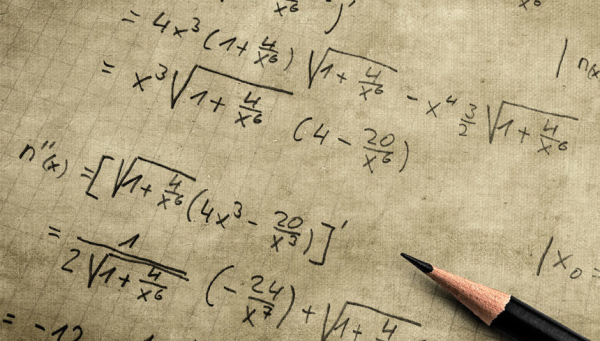 = 4x³(1+4/x⁶)√(1+4/x⁶) - x⁴ 3/2 √(1+4/x⁶)
= x³√(1+4/x⁶) (4 - 20/x⁶)
n''(x) = [√(1+4/x⁶)(4x³ - 20/x³)]'
= 1/(2√(1+4/x⁶)) (-24/x⁷) + √(1+4
|x₀ =
= -12